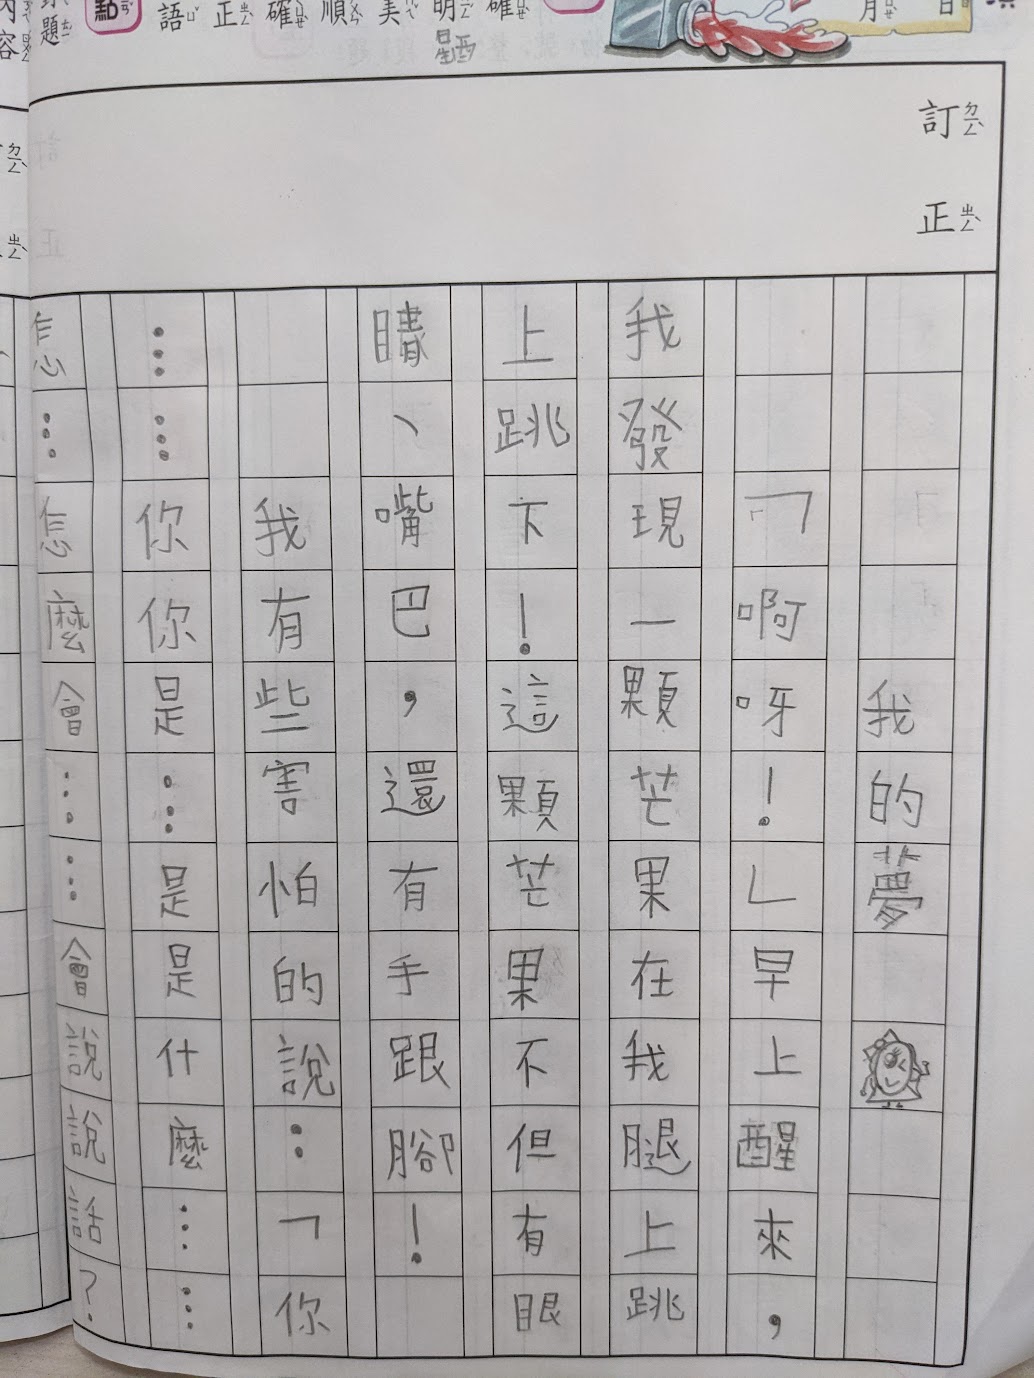 訂正
我的夢
「啊呀！」早上醒來，
我發現一顆芒果在我腿上跳
上跳下！這顆芒果不但有眼
睛、嘴巴，還有手跟腳！
我有些害怕的說：「你
……你你是…是是什麼……
怎…怎麼會……會說說話？